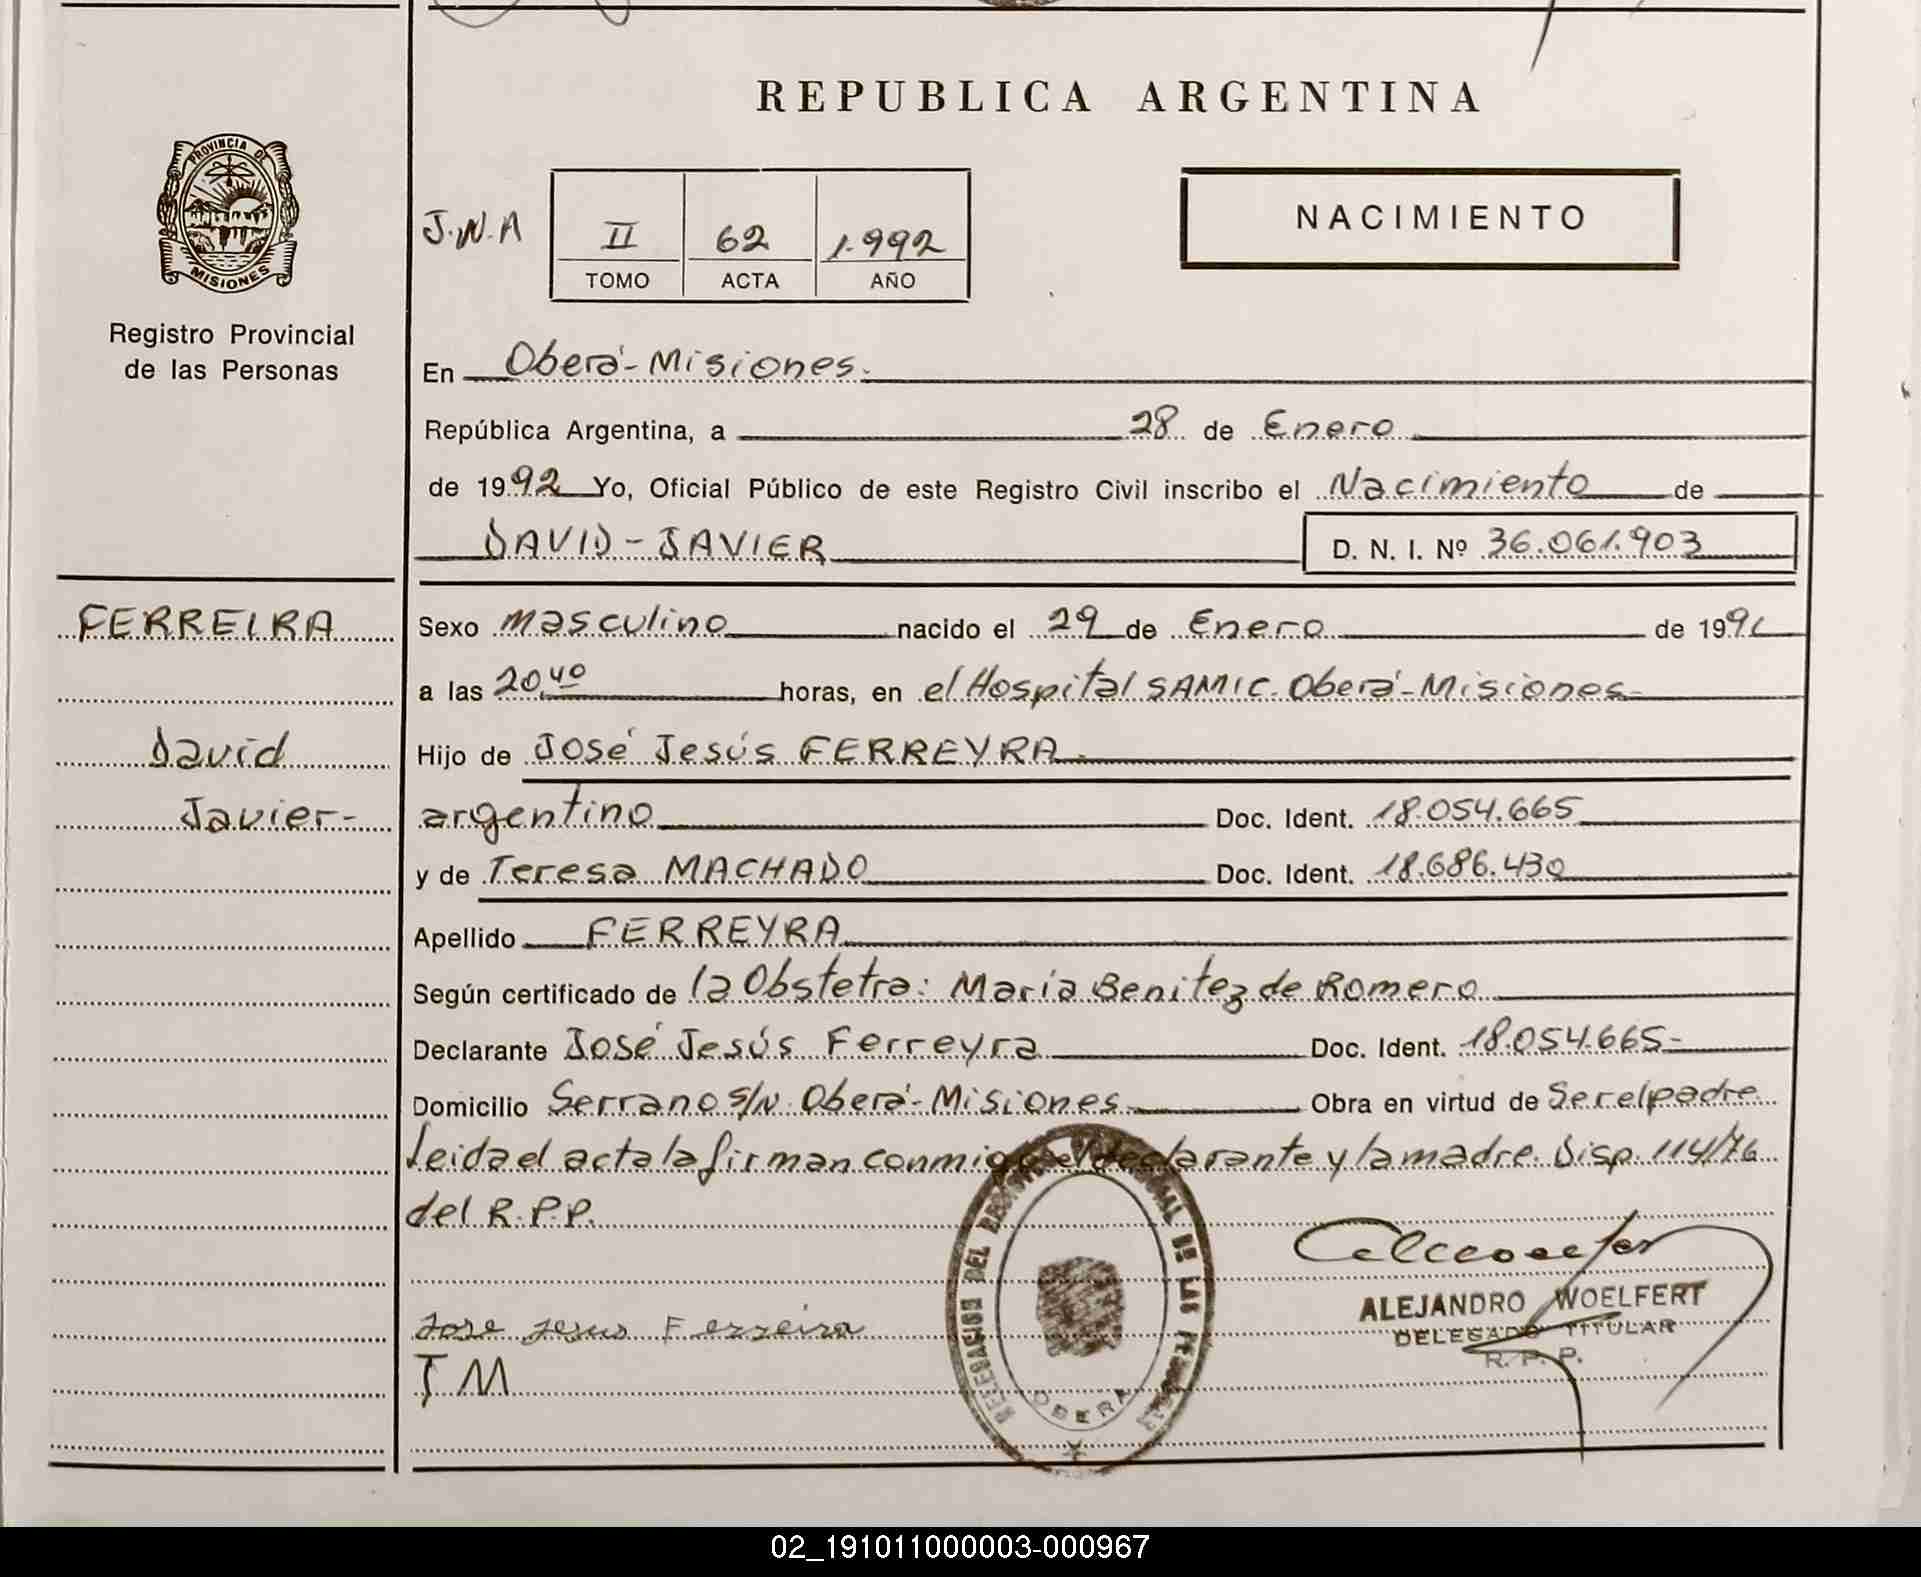 REPUBLICA ARGENTINA
PROVINCIA DE
MISIONES
Registro Provincial
de las Personas
J.N.A
II 62 1.992
TOMO ACTA AÑO
NACIMIENTO
En Oberá-Misiones.
República Argentina, a 28 de Enero
de 1992 Yo, Oficial Público de este Registro Civil inscribo el Nacimiento de
DAVID-JAVIER D. N. I. Nº 36.061.903
FERREIRA
David
Javier-
Sexo Masculino nacido el 29 de Enero de 1991
a las 20,40 horas, en el Hospital SAMIC. Oberá-Misiones-
Hijo de José Jesús FERREYRA-
argentino Doc. Ident. 18.054.665
y de Teresa MACHADO Doc. Ident. 18.686.430
Apellido FERREYRA
Según certificado de la Obstetra: María Benitez de Romero
Declarante José Jesús Ferreyra Doc. Ident. 18.054.665-
Domicilio Serrano s/N. Oberá-Misiones Obra en virtud de Ser el padre
Leida el acta la firman conmigo el declarante y la madre. Disp. 114/76
del R.P.P.
DELEGACION DEL REGISTRO PROVINCIAL DE LAS PERSONAS
OBERA
ALEJANDRO WOELFERT
DELEGADO TITULAR
R. P. P.
Jose Jesus Ferreira
T M
02_191011000003-000967